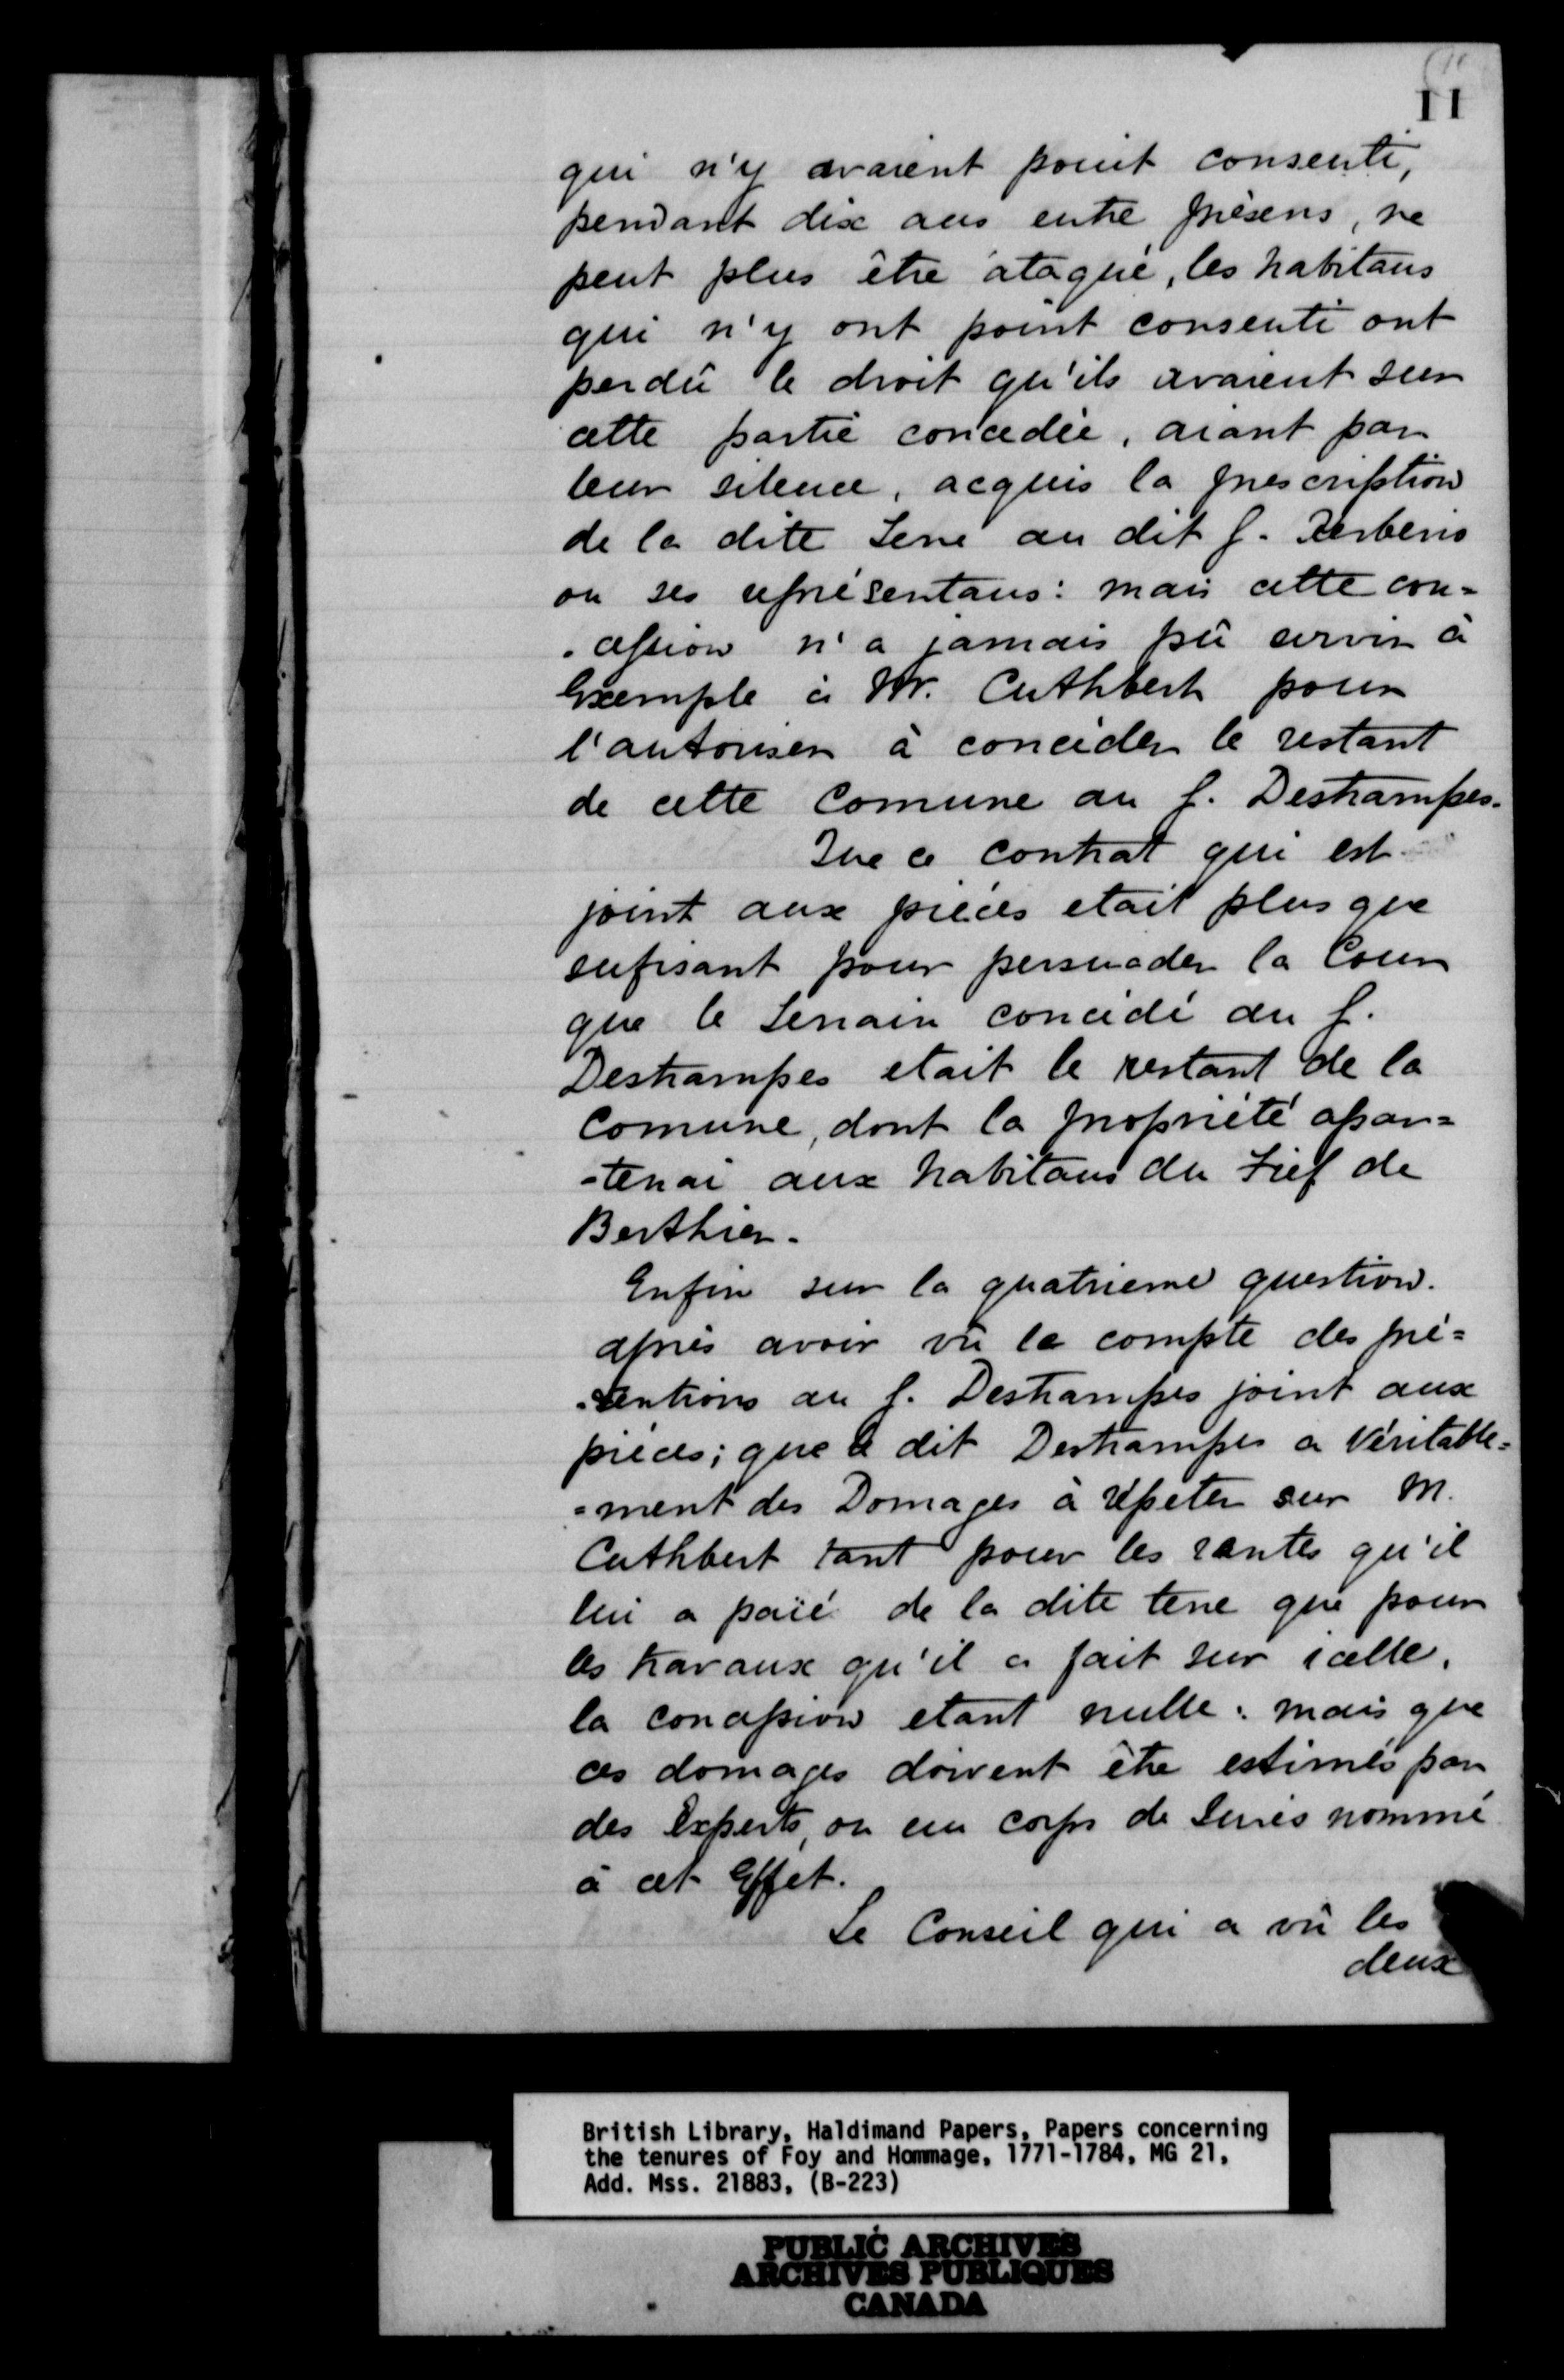 (11
11
qui n'y avaient point consenti,
pendant dix ans entre présens, ne
peut plus être ataqué, les habitans
qui n'y ont point consenti ont
perdû le droit qu'ils avaient sur
cette partie concedée, aiant par
leur silence, acquis la prescription
de la dite Terre au dit S. Kerberio
ou ses représentans: mais cette con=
-cession n'a jamais pû servir à
Exemple à Mr. Cuthbert pour
l'autoriser à concéder le restant
de cette Comune au S. Deschampes.
Que ce contrat qui est
joint aux piéces etait plus que
sufisant pour persuader la Cour
que le Terrain concédé au S.
Deschampes etait le restant de la
Comune, dont la propriété apar=
-tenai aux habitans du Fief de
Berthier.
Enfin sur la quatrieme question.
après avoir vû le compte des pré=
-tentions au S. Deschampes joint aux
piéces; que le dit Deschampes a Véritable=
=ment des Domages à répéter sur M.
Cuthbert tant pour les rantes qu'il
lui a paié de la dite terre que pour
les travaux qu'il a fait sur icelle,
la concession etant nulle: mais que
ces domages doivent être estimés par
des Experts, ou un corps de Jurés nommé
à cet Effet.
Le Conseil qui a vû les
deux
British Library, Haldimand Papers, Papers concerning
the tenures of Foy and Hommage, 1771-1784, MG 21,
Add. Mss. 21883, (B-223)
PUBLIC ARCHIVES
ARCHIVES PUBLIQUES
CANADA